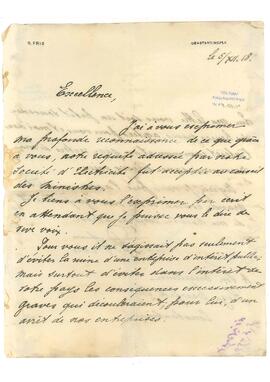 S. FRIS
CONSTANTINOPLE
le 5/XII. 18.
Excellence,
J'ai à vous exprimer
ma profonde reconnaissance de ce que grâce
à vous, notre requête adressée par notre
Société d'Electricité fut acceptée au conseil
des ministres.
Je tiens à vous l'exprimer par écrit
en attendant que je puisse vous le dire de
vive voix.
Pour vous il ne s'agissait pas seulement
d'éviter la ruine d'une entreprise d'intérêt public,
mais surtout d'éviter dans l'intérêt de
votre pays les conséquences excessivement
graves qui découleraient, pour lui, d'un
arrêt de nos entreprises.